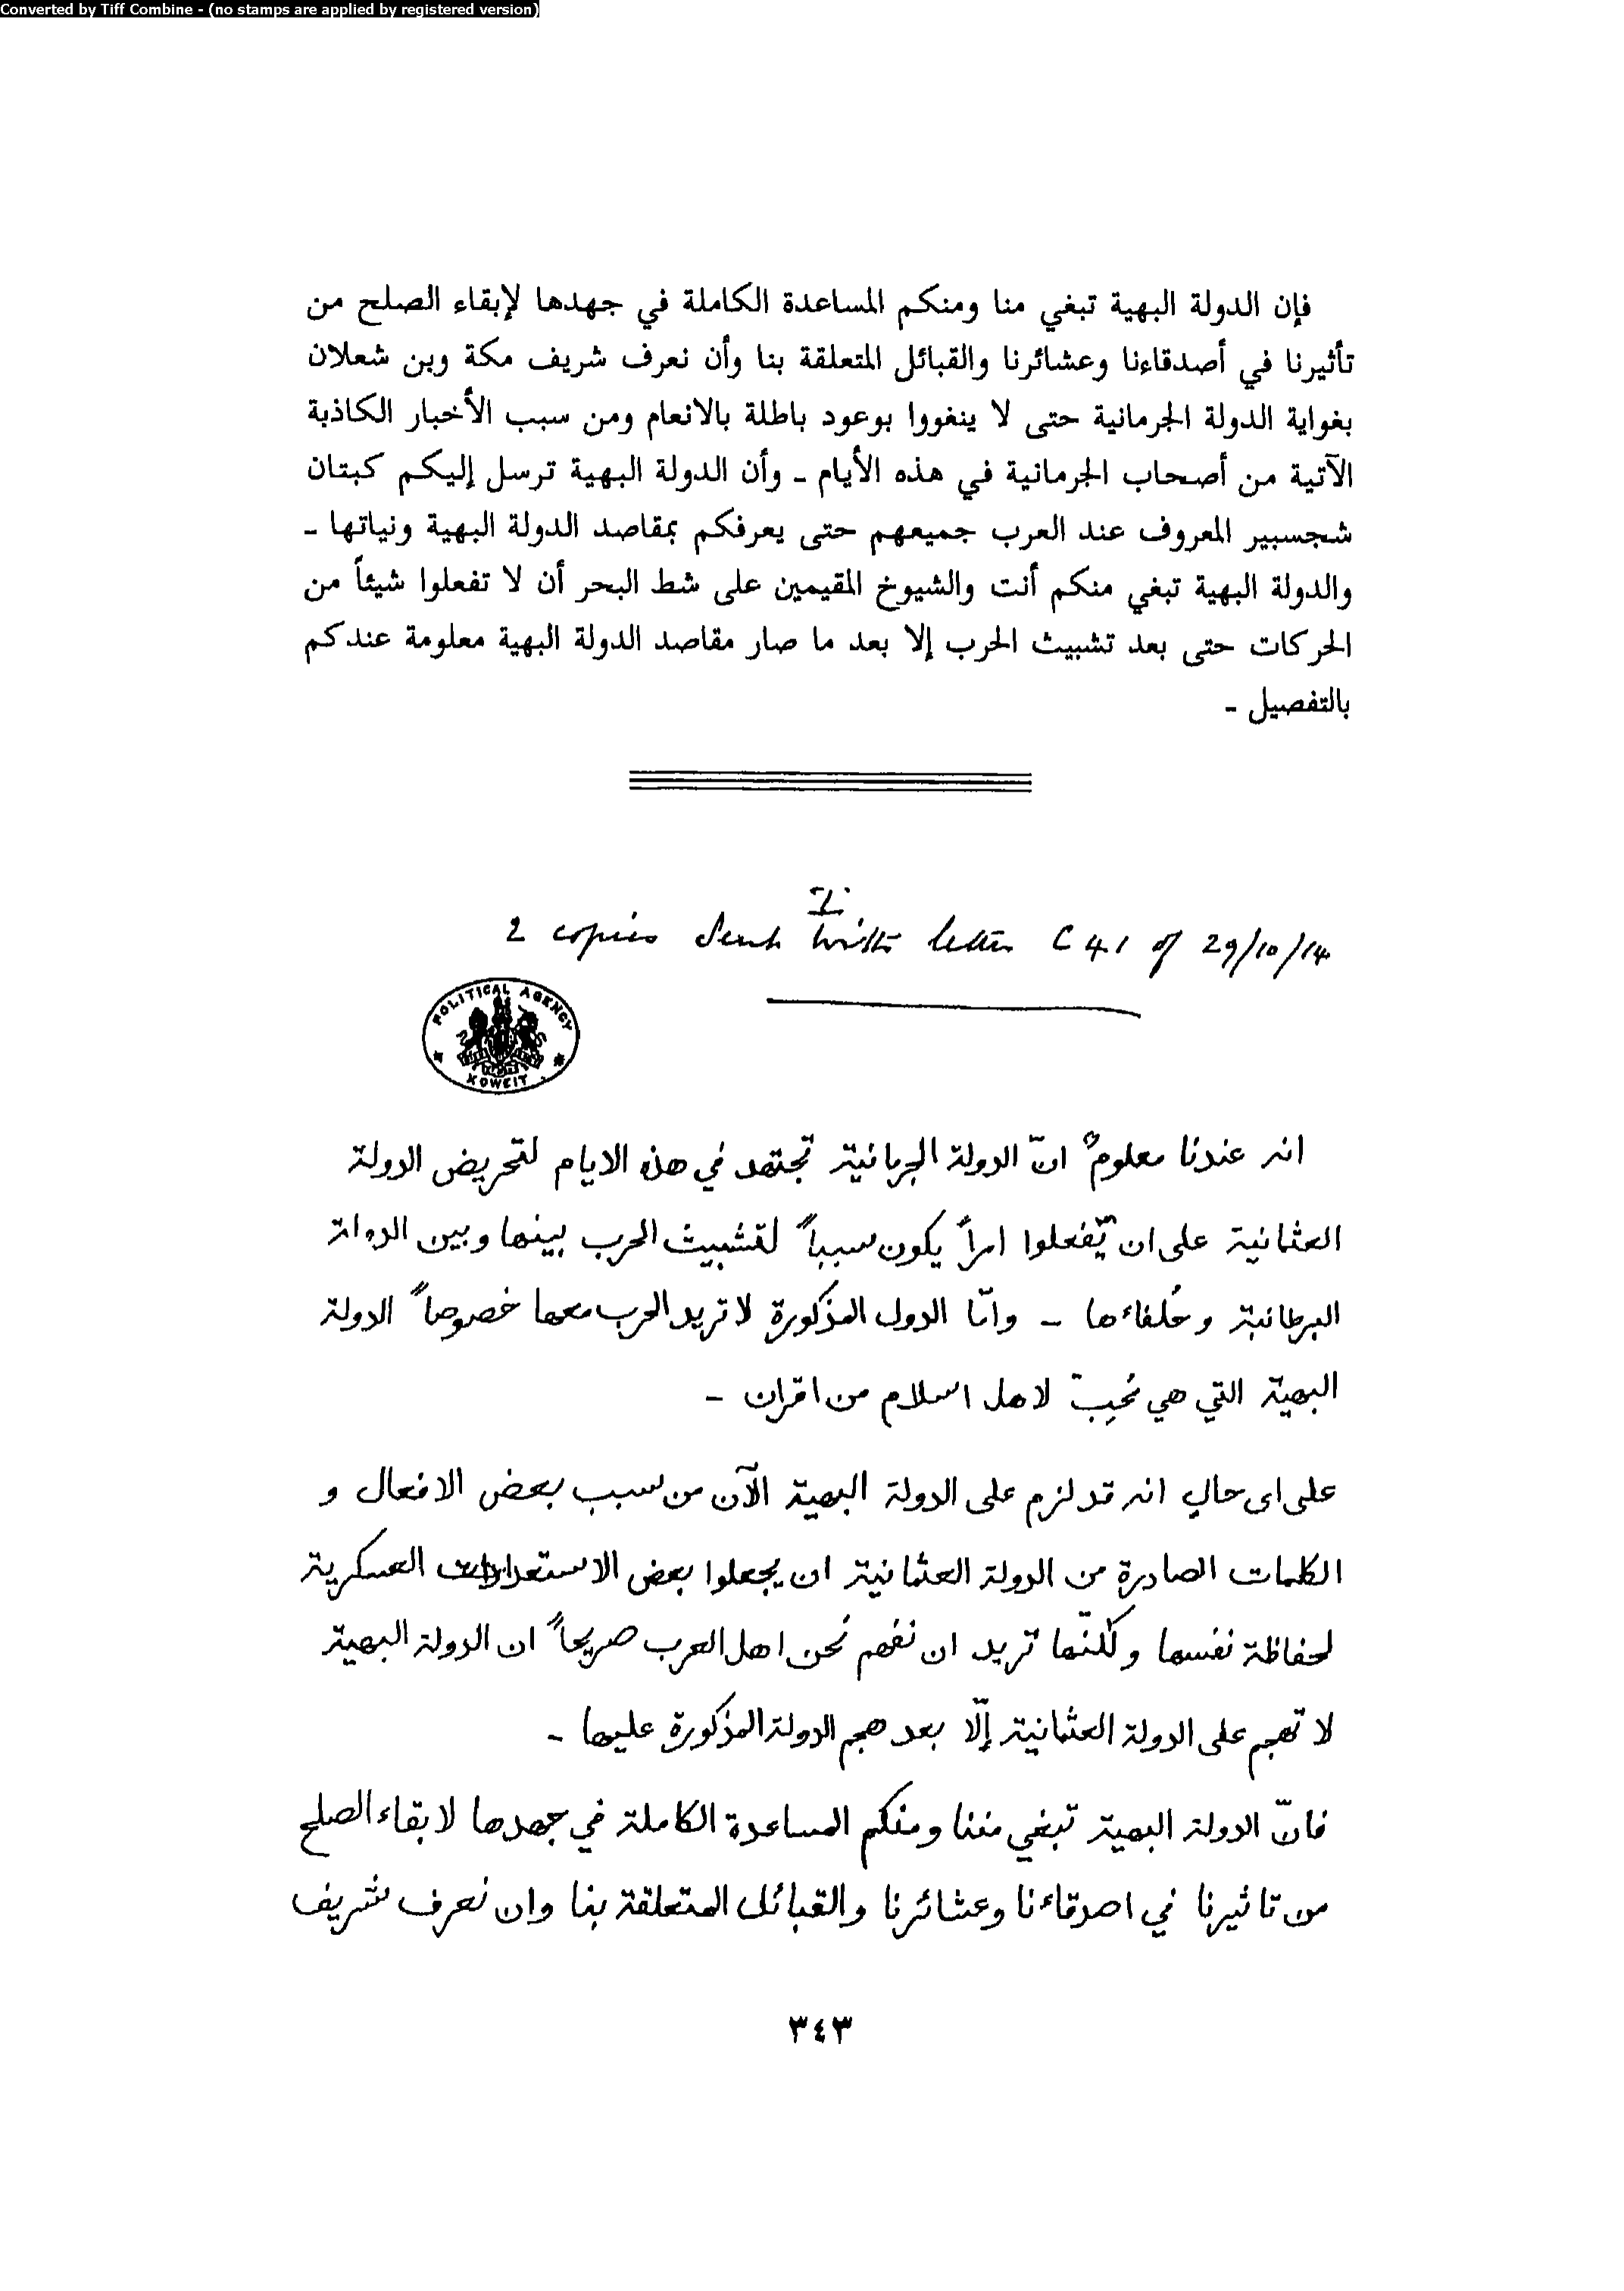 Converted by Tiff Combine - (no stamps are applied by registered version)
فإن الدولة البهية تبغي منا ومنكم المساعدة الكاملة في جهدها لإبقاء الصلح من
تأثيرنا في أصدقاءنا وعشائرنا والقبائل المتعلقة بنا وأن نعرف شريف مكة وبن شعلان
بغواية الدولة الجرمانية حتى لا ينغووا بوعود باطلة بالانعام ومن سبب الأخبار الكاذبة
الآتية من أصحاب الجرمانية في هذه الأيام ـ وأن الدولة البهية ترسل إليكم كبتان
شجسبير المعروف عند العرب جميعهم حتى يعرفكم بمقاصد الدولة البهية ونياتها ـ
والدولة البهية تبغي منكم أنت والشيوخ المقيمين على شط البحر أن لا تفعلوا شيئاً من
الحركات حتى بعد تشبيث الحرب إلا بعد ما صار مقاصد الدولة البهية معلومة عندكم
بالتفصيل ـ
I
2 copies sent with letter C 41 of 29/10/14
POLITICAL AGENCY
KOWEIT
انه عندنا معلومٌ انّ الدولة الجرمانية تجتهد في هذه الايام لتحريض الدولة
العثمانية على ان يّفعلوا امراً يكون سبباً لتشبيث الحرب بينها وبين الدولة
البرطانية وحُلفاءها ـ وامّا الدول المذكورة لا تريد الحرب معها خصوصاً الدولة
البهية التي هي مُحِبّ لاهل اسلام من اقران ـ
على اى حالٍ انه قد لزم على الدولة البهية الآن من سبب بعض الافعال و
الكلمات الصادرة من الدولة العثمانية ان يجعلوا بعض الاستعدادات العسكرية
لحفاظة نفسها ولٰكنّها تريد ان نفهم نحن اهل العرب صريحاً ان الدولة البهية
لا تهجم على الدولة العثمانية إلّا بعد هجم الدولة المذكورة عليها ـ
فانّ الدولة البهية تبغي مننا ومنكم المساعدة الكاملة في جهدها لابقاء الصلح
من تاثيرنا في اصدقاءنا وعشائرنا والقبائل المتعلقة بنا وان نعرف شريف
٣٤٣